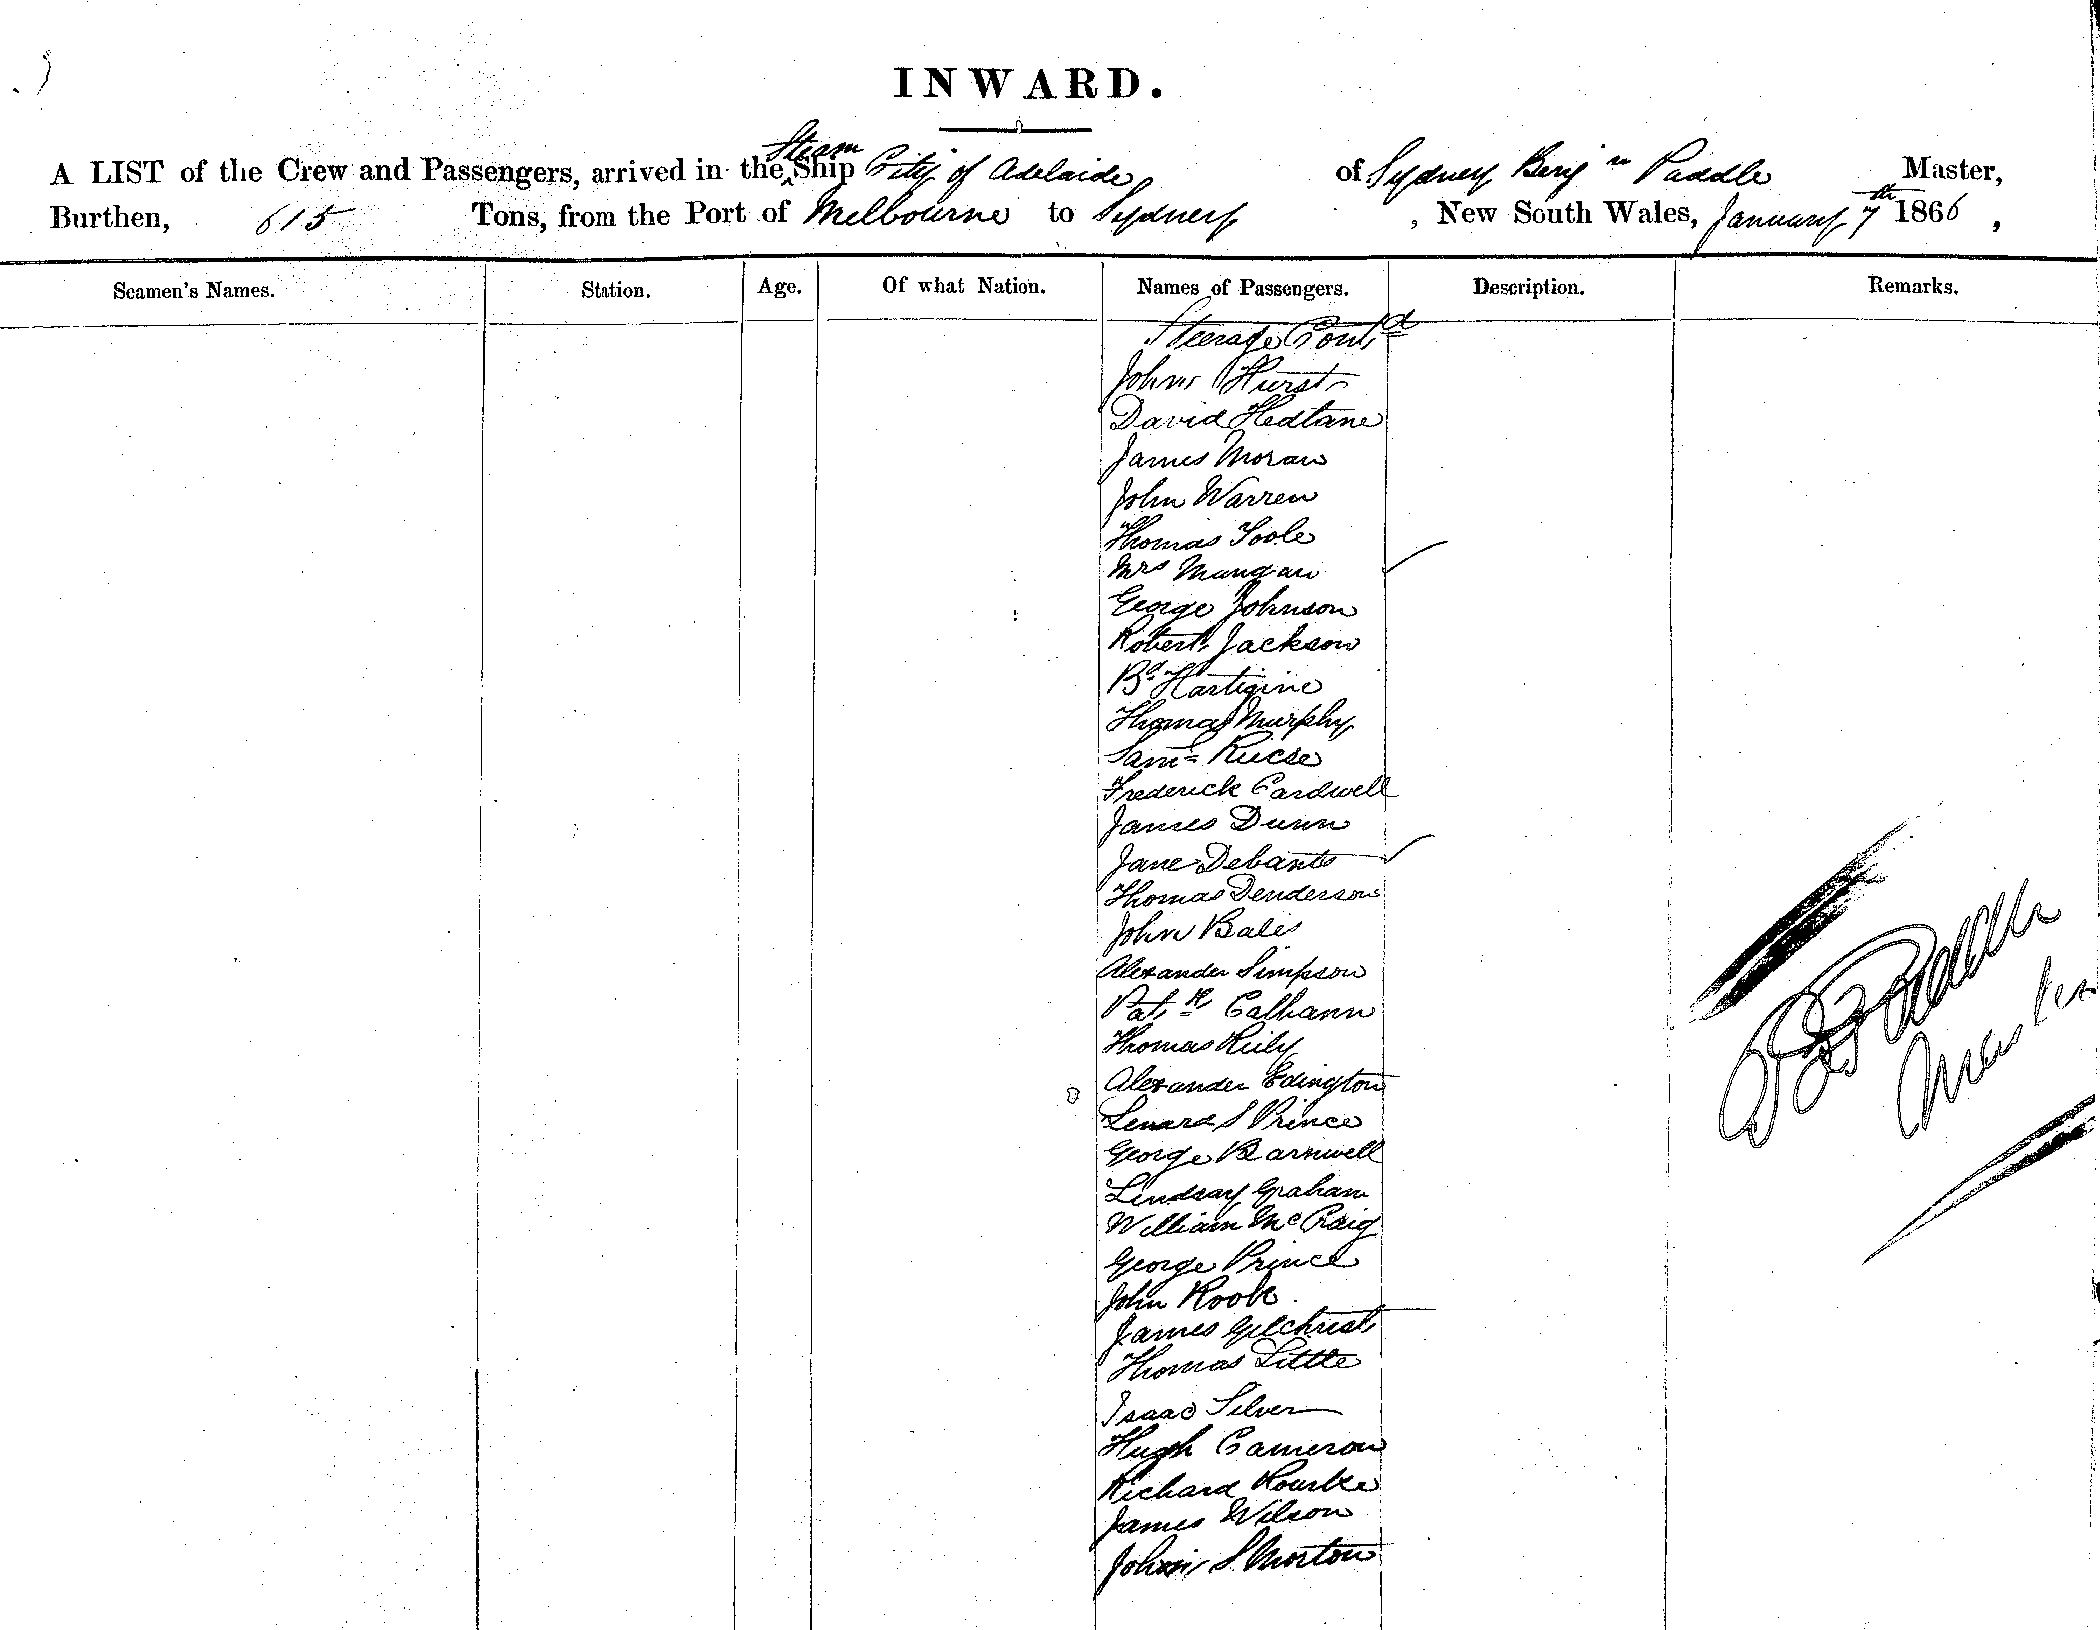 INWARD.
A LIST of the Crew and Passengers, arrived in the Steam Ship City of Adelaide of Sydney Benjn Paddle Master,
Burthen, 615 Tons, from the Port of Melbourne to Sydney, New South Wales, January 7th 1866,
Seamen's Names. Station. Age. Of what Nation. Names of Passengers. Description. Remarks.
Steerage Contd
John Hurst
David Hedtane
James Moran
John Warren
Thomas Toole
Mrs Mangan
George Johnson
Robert Jackson
Bd Hartigine
Thomas Murphy
Saml Reese
Frederick Cardwell
James Dunn
Jane Debants
Thomas Denderson
John Bales
Alexander Simpson
Patk Calhann
Thomas Riely
Alexander Edington
Lenard S Prince
George Barnwell
Lindsay Graham
William McCraig
George Prince
John Rook
James Gilchrist
Thomas Little
Isaac Silver
Hugh Cameron
Richard Rourke
James Wilson
John S. Morton
Master